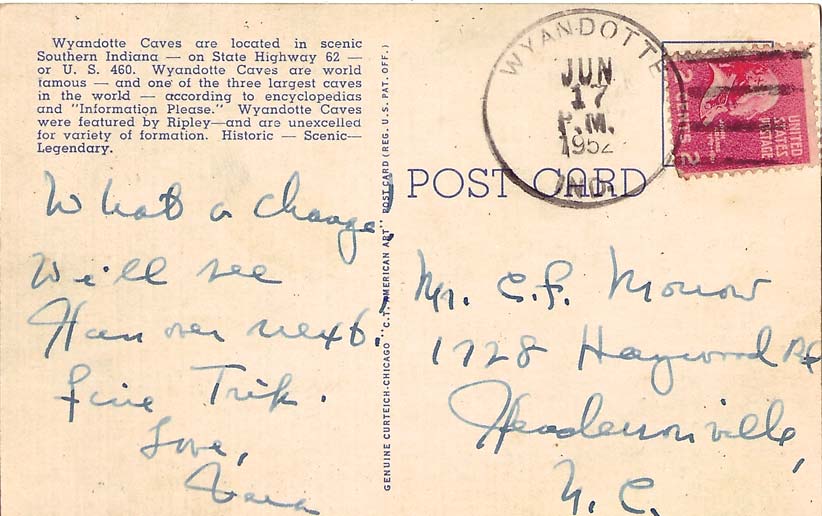 Wyandotte Caves are located in scenic
Southern Indiana — on State Highway 62 —
or U. S. 460. Wyandotte Caves are world
famous — and one of the three largest caves
in the world — according to encyclopedias
and "Information Please." Wyandotte Caves
were featured by Ripley—and are unexcelled
for variety of formation. Historic — Scenic—
Legendary.
What a change!
We'll see
Hanover next.
Fine Trip.
Love,
GENUINE CURTEICH-CHICAGO "C.T. AMERICAN ART" POST CARD (REG. U.S. PAT. OFF.)
POST CARD
WYANDOTTE
JUN
17
P.M.
1952
IND.
UNITED
STATES
POSTAGE
2 CENTS 2
Mr. C. F. Morrow
1728 Haywood Rd
Hendersonville,
N. C.